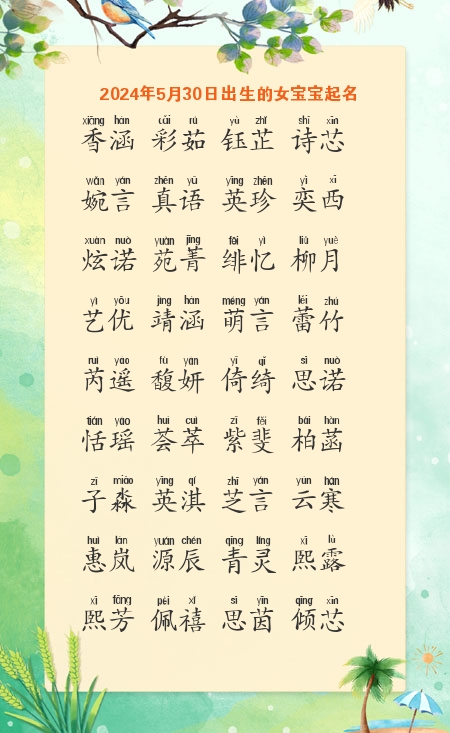 2024年5月30日出生的女宝宝起名
xiāng hán cǎi rú yù zhǐ shī xīn
香涵 彩茹 钰芷 诗芯
wǎn yán zhēn yǔ yīng zhēn yì xī
婉言 真语 英珍 奕西
xuàn nuò yuàn jīng fēi yì liǔ yuè
炫诺 苑菁 绯忆 柳月
yì yōu jìng hán méng yán lěi zhú
艺优 靖涵 萌言 蕾竹
ruì yáo fù yán yǐ qǐ sī nuò
芮遥 馥妍 倚绮 思诺
tián yáo huì cuì zǐ fěi bǎi hàn
恬瑶 荟萃 紫斐 柏菡
zǐ miǎo yīng qí zhī yán yún hán
子淼 英淇 芝言 云寒
huì lán yuán chén qīng líng xī lù
惠岚 源辰 青灵 熙露
xī fāng pèi xǐ sī yīn qīng xīn
熙芳 佩禧 思茵 倾芯